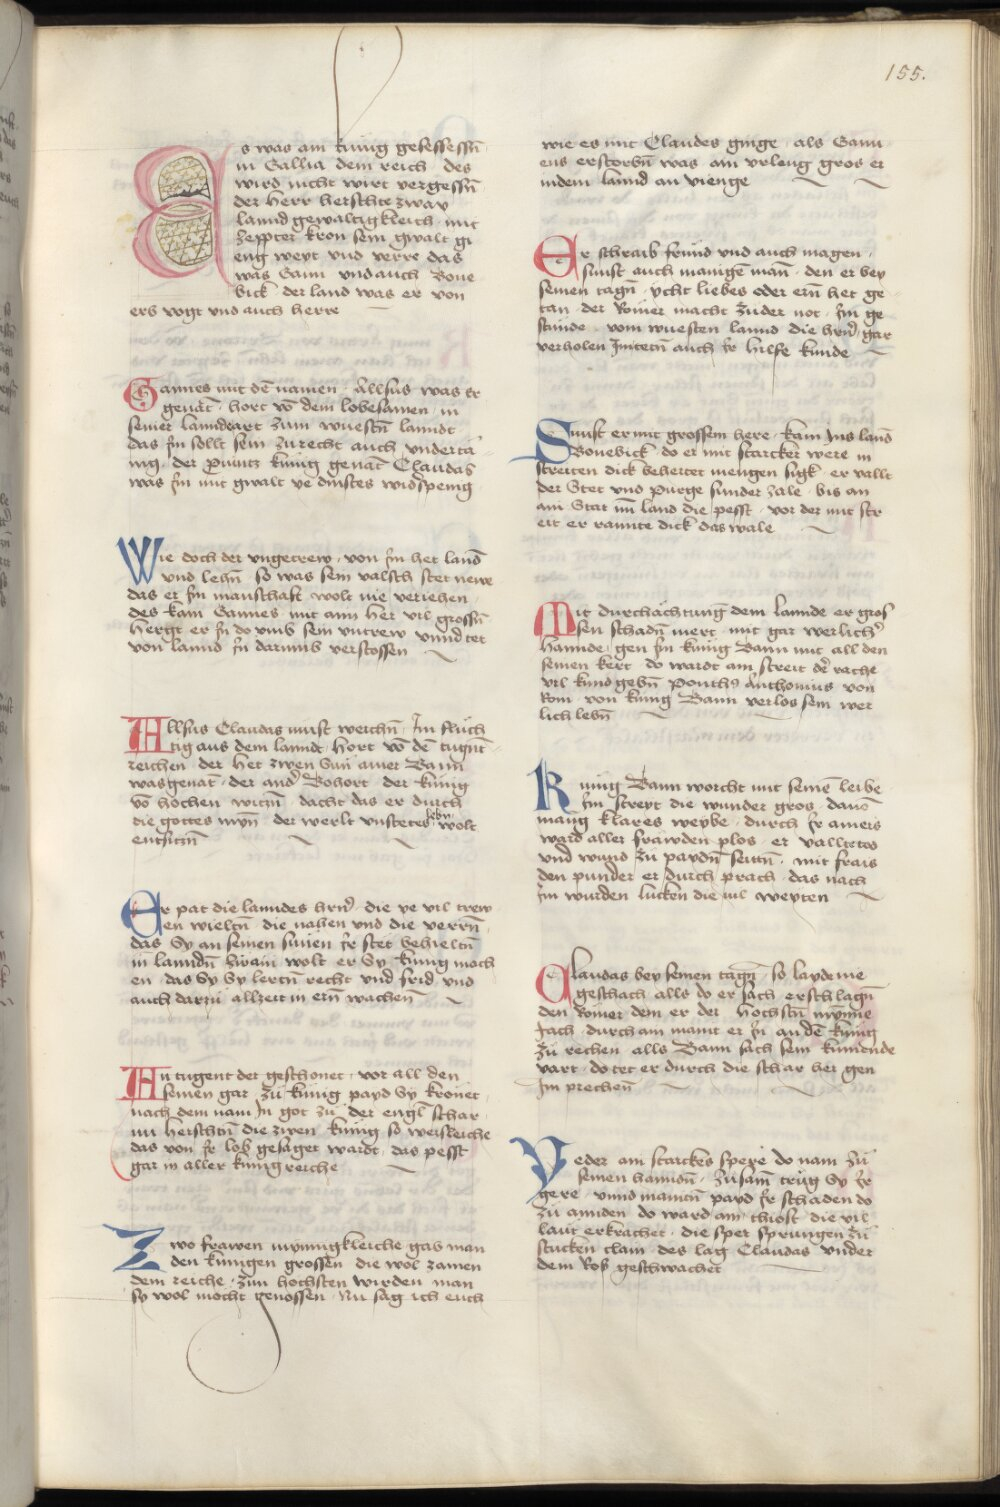 155.
Es was am künig gesessessn̄
in Gallia dem reich des
wird nicht wirt vergessn̄
der herr herschte zway
lannd gewaltigkleich mit
Zeppter kron sein gwalt gi
eng weyt und verre das
was Gann und auch Bone
bick der land was er von
erb vogt und auch herre
Gannes mit dē namen Allsus was er
genāt hort vō dem lobesamen in
seiner lanndtart zum wuestn̄ lanndt
das Im sollt sein zu recht auch undertā
nig der Prinntz künig genāt Claudas
was Im mit gwalt ye dinstes widspenig
Wie doch der ungetrew von Im het land
und lehn̄ so was sein valsch stet newe
das er Im manschaft wolt nie veriehen
des kam Gannes mit aim her vil grossn̄
herzt er In do umb sein untrew unnd tet
von lannd In darumb verstossen
Allsus Claudas must weichn̄ Im fluch
tig aus dem lanndt hort vō dē tugnt
reichen der het zwen Sun ainer Bann
was genāt der and Bohort der künig
vō hochen witzn̄ dacht das er durch
die gottes mynn̄ der werlt unstetes lebn wolt
entsitzn̄
Er pat die lanndes hrn̄ die ye vil trew
en wieltn̄ die nahen und die verrn̄
das Sy an seinen sunen Ir stet behieltn̄
in lanndn̄ zwain wolt er Sy künig mach
en das Sy Sy lertn̄ recht und frid und
auch darzu allzeit in ern̄ wachen̄
An tugent der geschonet vor all den
seinen gar zu künig payd Sy kronet
nach dem nam In got zu der engl schar
nu herschtn̄ die zwen künig so weisleiche
das von Ir lob gesaget wardt das pesst
gar in aller künigreiche
Zwo frawen mynnigkleiche gab man
den künigen grossen die wol zamen
dem reiche zum hochsten wirden man
sy wol mocht genossen Nu sag ich euch
wie es mit Claudes ginge als Gann
ens erstorbn̄ was ain urleug gros er
in dem lannd an vienge
Er schraib frund und auch magen
sunst auch manigē man den er bey
seinen tagn̄ ycht liebes oder ern̄ het ge
tan der Romer macht zu der not Im ge
stunde vom wuesten lannd die hrn̄ gar
verholen Im tetn̄ auch Ir hilfe kunde
Sunst er mit grossem here kam Ins land
Bonebick do er mit starcker were in
streiten dick behertet mengen sigk er vallt
der Stet und Purge sunder zale bis an
ain Stat im land die pesst vor der mit str
eit er rannte dick das wale
Mit durchachtung dem lannde er gros
sen schadn̄ mert mit gar werlich
hannde gen Im künig Bann mit all den
seinen kert do wardt am streit d rache
vil kund gebn̄ Pontus Anthonius von
Rom von künig Bann verlos sein wer
lich lebn̄
Künig Bann worcht mit seinē leibe
Im streyt die wunder gros davō
manig klares weybe durch Ir ameis
ward aller frawden plos er vallt tot
und wund zu paydn̄ seittn̄ mit frais
den punder er durch prach das nach
Im wurden lucken die vil weyten
Claudas bey seinen tagn̄ so layde nie
geschach alls do er sach erschlagn̄
den Romer dem er der hochstn̄ mynne
Jach durch ain mannt er In an dē künig
zu rechen alls Bann sach sein kumende
vart do tet er durch die schar her gen
Im prechen̄
Yeder ain starckes spere do nam zu
seinen hanndn̄ zusam trug Sy Ir
gere unnd maintn̄ payd Ir schaden do
zu annden do ward ain thiost die vil
laut erkrachet die sper sprungen zu
stucken clain des lag Claudas under
dem Ros geschwachet